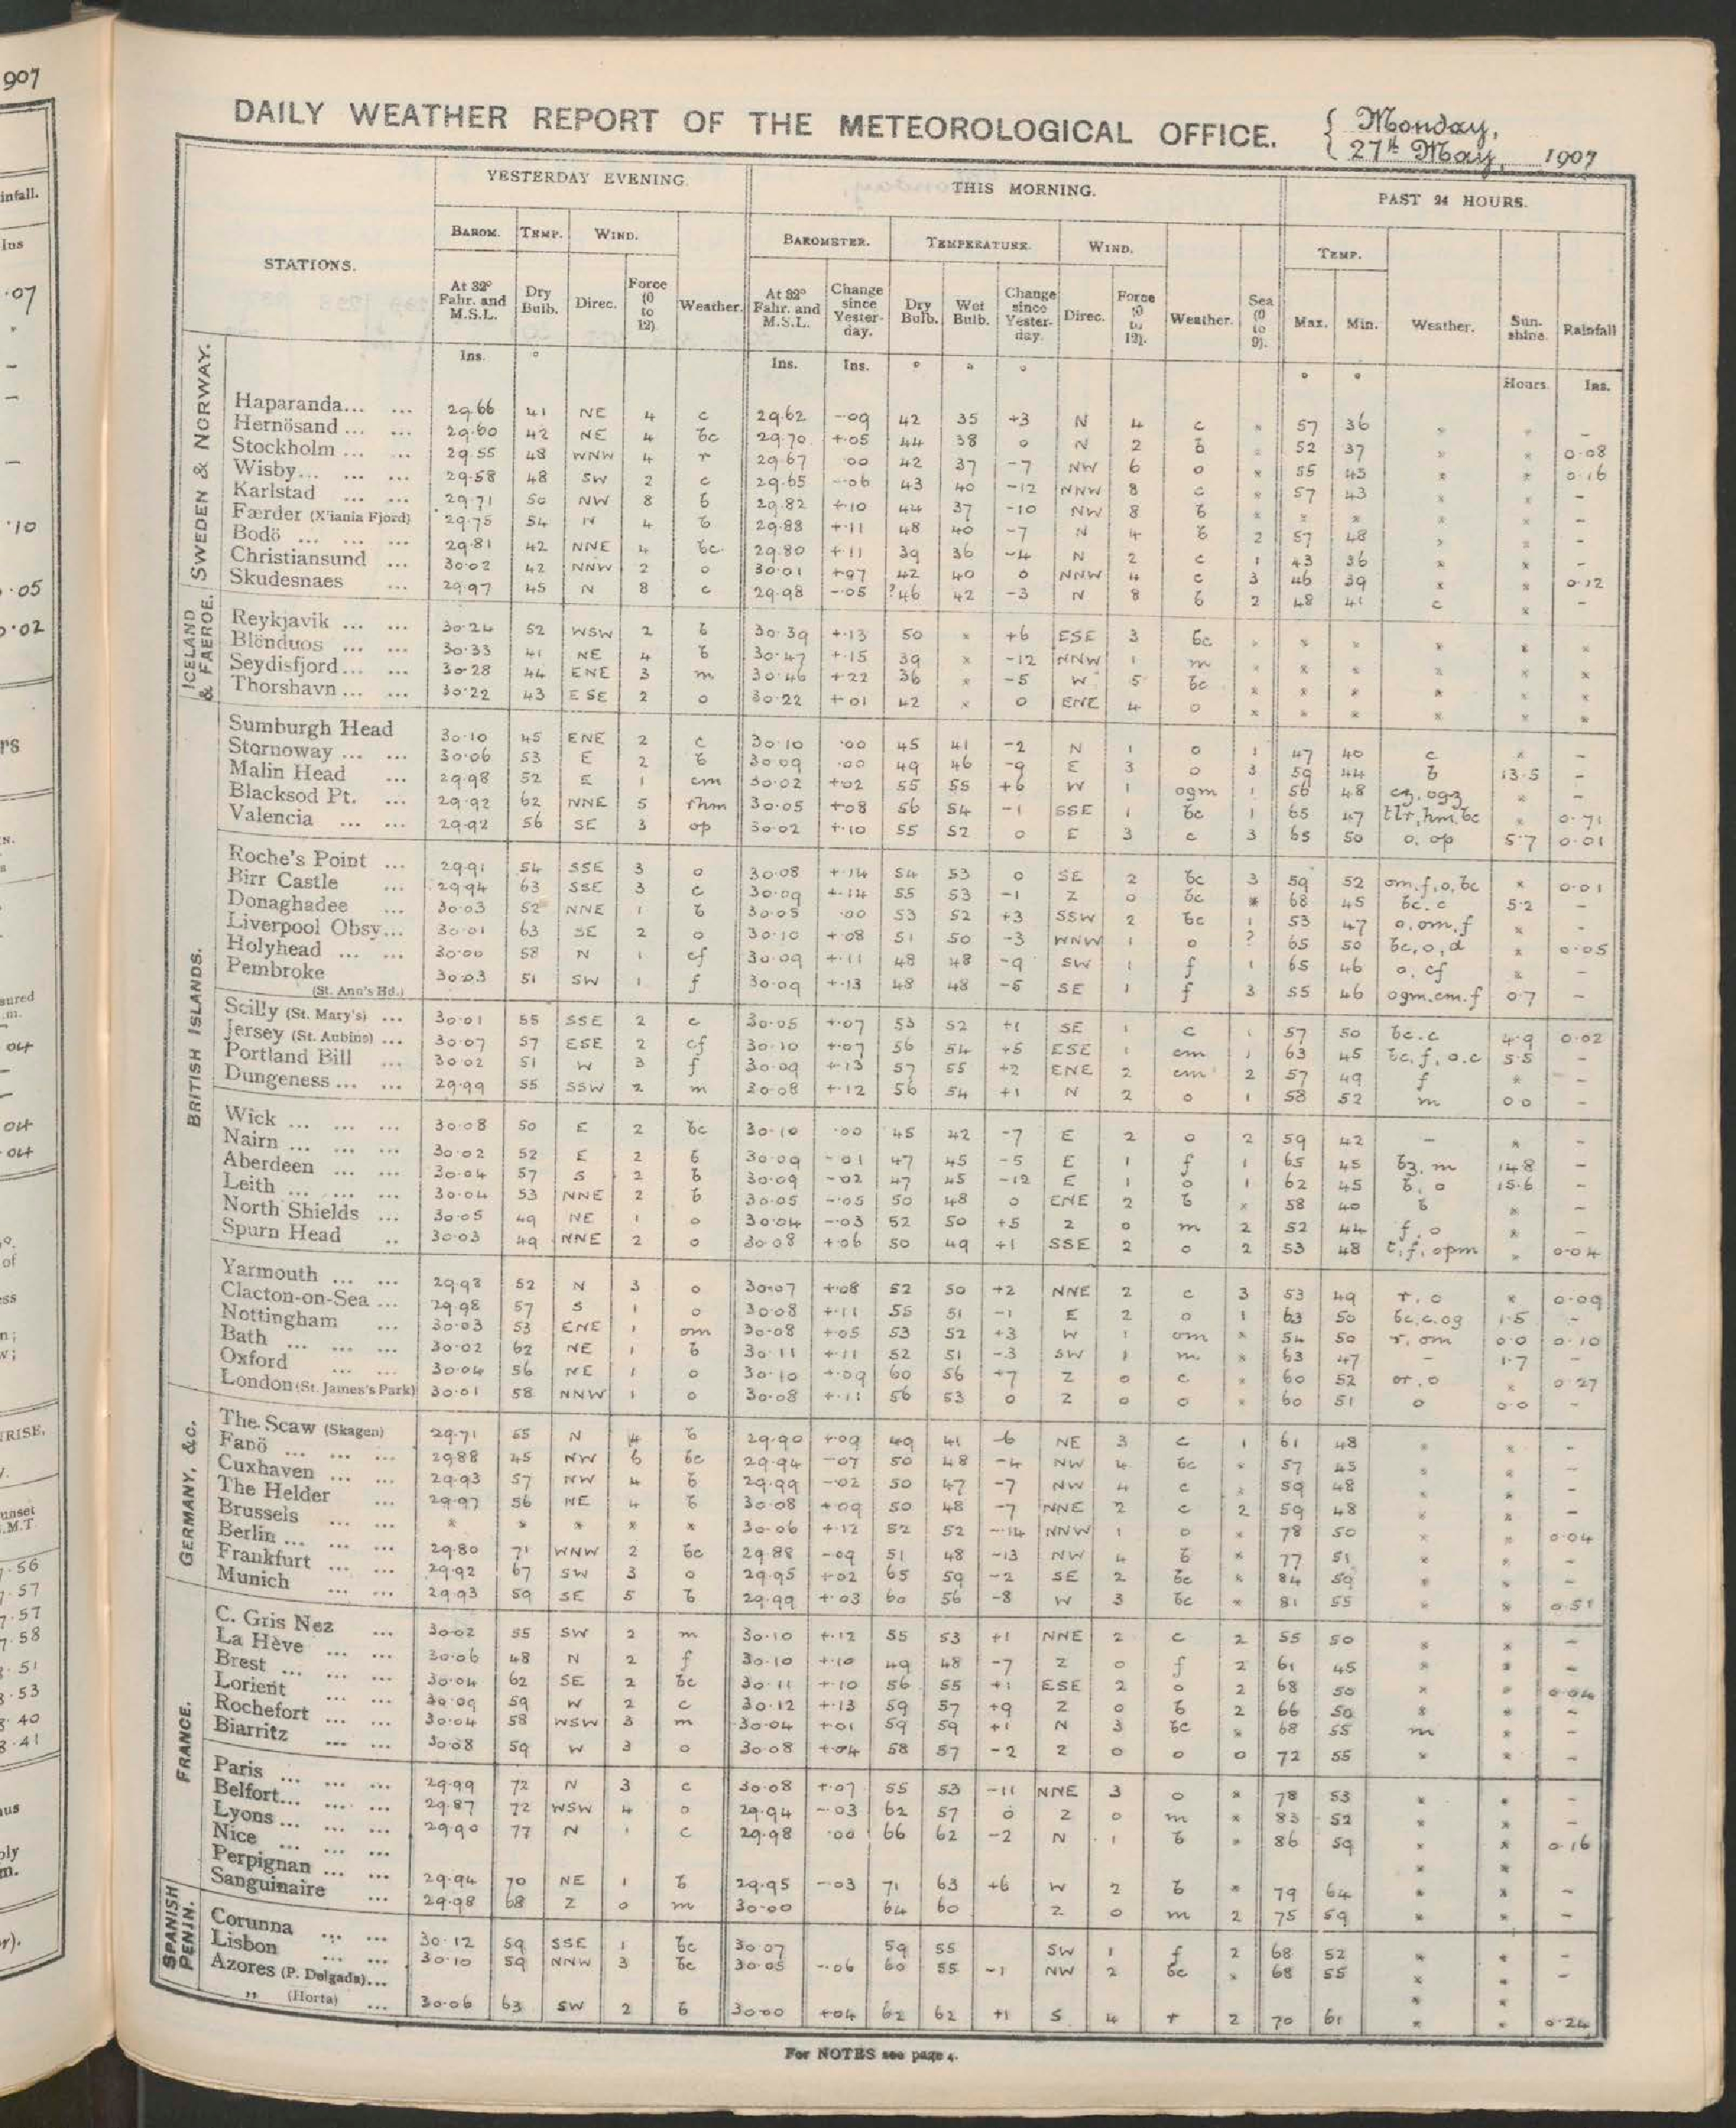 907
infall.
Ins
.07
.10
.05
0.02
DAILY WEATHER REPORT OF THE METEOROLOGICAL OFFICE. Monday, 27th May, 1907
YESTERDAY EVENING. THIS MORNING. PAST 24 HOURS.
BAROM. TEMP. WIND. BAROMETER. TEMPERATURE. WIND. TEMP.
STATIONS. At 32° Fahr. and M.S.L. Dry Bulb. Direc. Force (0 to 12). Weather. At 32° Fahr. and M.S.L. Change since Yesterday. Dry Bulb. Wet Bulb. Change since Yesterday. Direc. Force (0 to 12). Weather. Sea (0 to 9). Max. Min. Weather. Sunshine. Rainfall
Ins. ° Ins. Ins. ° ° ° ° ° Hours. Ins.
SWEDEN & NORWAY.
Haparanda... ... 29.66 41 NE 4 c 29.62 -.09 42 35 +3 N 4 c * 57 36 * * –
Hernösand ... ... 29.60 42 NE 4 bc 29.70 +.05 44 38 0 N 2 b * 52 37 * * 0.08
Stockholm ... ... 29.55 48 WNW 4 r 29.67 .00 42 37 -7 NW 6 o * 55 43 * * 0.16
Wisby... ... ... 29.58 48 SW 2 c 29.65 -.06 43 40 -12 NNW 8 c * 57 43 * * –
Karlstad ... ... 29.71 50 NW 8 b 29.82 +.10 44 37 -10 NW 8 b * * * * * –
Færder (X'iania Fjord) 29.75 54 N 4 b 29.88 +.11 48 40 -7 N 4 b 2 57 48 * * –
Bodö ... ... ... 29.81 42 NNE 4 bc 29.80 +.11 39 36 -4 N 2 c 1 43 36 * * –
Christiansund ... 30.02 42 NNW 2 o 30.01 +.07 42 40 0 NNW 4 c 3 46 39 * * 0.12
Skudesnaes ... 29.97 45 N 8 c 29.98 -.05 ?46 42 -3 N 8 b 2 48 41 c * –
ICELAND & FAEROE.
Reykjavik ... ... 30.24 52 WSW 2 b 30.39 +.13 50 * +6 ESE 3 bc * * * * * *
Blönduos ... ... 30.33 41 NE 4 b 30.47 +.15 39 * -12 NNW 1 m * * * * * *
Seydisfjord... ... 30.28 44 ENE 3 m 30.46 +.22 36 * -5 W 5 bc * * * * * *
Thorshavn ... ... 30.22 43 ESE 2 o 30.22 +.01 42 * 0 ENE 4 o * * * * * *
BRITISH ISLANDS.
Sumburgh Head 30.10 45 ENE 2 c 30.10 .00 45 41 -2 N 1 o 1 47 40 c * –
Stornoway ... ... 30.06 53 E 2 b 30.09 .00 49 46 -9 E 3 o 3 59 44 b 13.5 –
Malin Head ... 29.98 52 E 1 cm 30.02 +.02 55 55 +6 W 1 ogm 1 56 48 cz, ogz * –
Blacksod Pt. ... 29.92 62 NNE 5 rhm 30.05 +.08 56 54 -1 SSE 1 bc 1 65 47 tlr, hm, bc * 0.71
Valencia ... ... 29.92 56 SE 3 op 30.02 +.10 55 52 0 E 3 c 3 65 50 o, op 5.7 0.01
Roche's Point ... 29.91 54 SSE 3 o 30.08 +.14 54 53 0 SE 2 bc 3 59 52 om, f, o, bc * 0.01
Birr Castle ... 29.94 63 SSE 3 c 30.09 +.14 55 53 -1 Z 0 bc * 68 45 bc, c 5.2 –
Donaghadee ... 30.03 52 NNE 1 b 30.05 .00 53 52 +3 SSW 2 bc 1 53 47 o, om, f * –
Liverpool Obsy... 30.01 63 SE 2 o 30.10 +.08 51 50 -3 WNW 1 o ? 65 50 bc, o, d * 0.05
Holyhead ... ... 30.00 58 N 1 cf 30.09 +.11 48 48 -9 SW 1 f 1 65 46 o, cf * –
Pembroke (St. Ann's Hd.) 30.03 51 SW 1 f 30.09 +.13 48 48 -5 SE 1 f 3 55 46 ogm, cm, f 0.7 –
Scilly (St. Mary's) ... 30.01 55 SSE 2 c 30.05 +.07 53 52 +1 SE 1 c 1 57 50 bc, c 4.9 0.02
Jersey (St. Aubins) ... 30.07 57 ESE 2 cf 30.10 +.07 56 54 +5 ESE 1 cm 1 63 45 bc, f, o, c 5.5 –
Portland Bill ... 30.02 51 W 3 f 30.09 +.13 57 55 +2 ENE 2 cm 2 57 49 f * –
Dungeness ... ... 29.99 55 SSW 2 m 30.08 +.12 56 54 +1 N 2 o 1 58 52 m 0.0 –
Wick ... ... ... 30.08 50 E 2 bc 30.10 .00 45 42 -7 E 2 o 2 59 42 – * –
Nairn ... ... ... 30.02 52 E 2 b 30.09 -.01 47 45 -5 E 1 f 1 65 45 bz, m 14.8 –
Aberdeen ... ... 30.04 57 S 2 b 30.09 -.02 47 45 -12 E 1 o 1 62 45 b, o 15.6 –
Leith ... ... ... 30.04 53 NNE 2 b 30.05 -.05 50 48 0 ENE 2 b * 58 40 b * –
North Shields ... 30.05 49 NE 1 o 30.04 -.03 52 50 +5 Z 0 m 2 52 44 f, o * –
Spurn Head .. 30.03 49 NNE 2 o 30.08 +.06 50 49 +1 SSE 2 o 2 53 48 t, f, opm * 0.04
Yarmouth ... ... 29.98 52 N 3 o 30.07 +.08 52 50 +2 NNE 2 c 3 53 49 r, o * 0.09
Clacton-on-Sea ... 29.98 57 S 1 o 30.08 +.11 55 51 -1 E 2 o 1 63 50 bc, c, og 1.5 –
Nottingham ... 30.03 53 ENE 1 om 30.08 +.05 53 52 +3 W 1 om * 54 50 r, om 0.0 0.10
Bath ... ... ... 30.02 62 NE 1 b 30.11 +.11 52 51 -3 SW 1 m * 63 47 – 1.7 –
Oxford ... ... 30.04 56 NE 1 o 30.10 +.09 60 56 +7 Z 0 c * 60 52 or, o * 0.27
London (St. James's Park) 30.01 58 NNW 1 o 30.08 +.11 56 53 0 Z 0 o * 60 51 o 0.0 –
GERMANY, &c.
The Scaw (Skagen) 29.71 55 N 4 b 29.90 +.09 49 41 -6 NE 3 c 1 61 48 * * –
Fanö ... ... ... 29.88 45 NW 6 bc 29.94 -.07 50 48 -4 NW 4 bc * 57 45 * * –
Cuxhaven ... ... 29.93 57 NW 4 b 29.99 -.02 50 47 -7 NW 4 c * 59 48 * * –
The Helder ... 29.97 56 NE 4 b 30.08 +.09 50 48 -7 NNE 2 c 2 59 48 * * –
Brussels ... ... * * * * * 30.06 +.12 52 52 -14 NNW 1 o * 78 50 * * 0.04
Berlin ... ... ... 29.80 71 WNW 2 bc 29.88 -.09 51 48 -13 NW 4 b * 77 51 * * –
Frankfurt ... ... 29.92 67 SW 3 o 29.95 +.02 65 59 -2 SE 2 bc * 84 59 * * –
Munich ... ... 29.93 59 SE 5 b 29.99 +.03 60 56 -8 W 3 bc * 81 55 * * 0.51
FRANCE.
C. Gris Nez ... 30.02 55 SW 2 m 30.10 +.12 55 53 +1 NNE 2 c 2 55 50 * * –
La Hève ... ... 30.06 48 N 2 f 30.10 +.10 49 48 -7 Z 0 f 2 61 45 * * –
Brest ... ... ... 30.04 62 SE 2 bc 30.11 +.10 56 55 +1 ESE 2 o 2 68 50 * * 0.04
Lorient ... ... 30.09 59 W 2 c 30.12 +.13 59 57 +9 Z 0 b 2 66 50 * * –
Rochefort ... ... 30.04 58 WSW 3 m 30.04 +.01 59 59 +1 N 3 bc * 68 55 m * –
Biarritz ... ... 30.08 59 W 3 o 30.08 +.04 58 57 -2 Z 0 o 0 72 55 * * –
Paris ... ... ... 29.99 72 N 3 c 30.08 +.07 55 53 -11 NNE 3 o * 78 53 * * –
Belfort... ... ... 29.87 72 WSW 4 o 29.94 -.03 62 57 0 Z 0 m * 83 52 * * –
Lyons ... ... ... 29.90 77 N 1 c 29.98 .00 66 62 -2 N 1 b * 86 59 * * 0.16
Nice ... ... ... * *
Perpignan ... ... 29.94 70 NE 1 b 29.95 -.03 71 63 +6 W 2 b * 79 64 * * –
Sanguinaire ... 29.98 68 Z 0 m 30.00 64 60 Z 0 m 2 75 59 * * –
SPANISH PENIN.
Corunna ... ... 30.12 59 SSE 1 bc 30.07 59 55 SW 1 f 2 68 52 * * –
Lisbon ... ... 30.10 59 NNW 3 bc 30.05 -.06 60 55 -1 NW 2 bc * 68 55 * * –
Azores (P. Delgada)... * *
" (Horta) ... 30.06 63 SW 2 b 30.00 +.04 62 62 +1 S 4 r 2 70 61 * * 0.24
For NOTES see page 4.